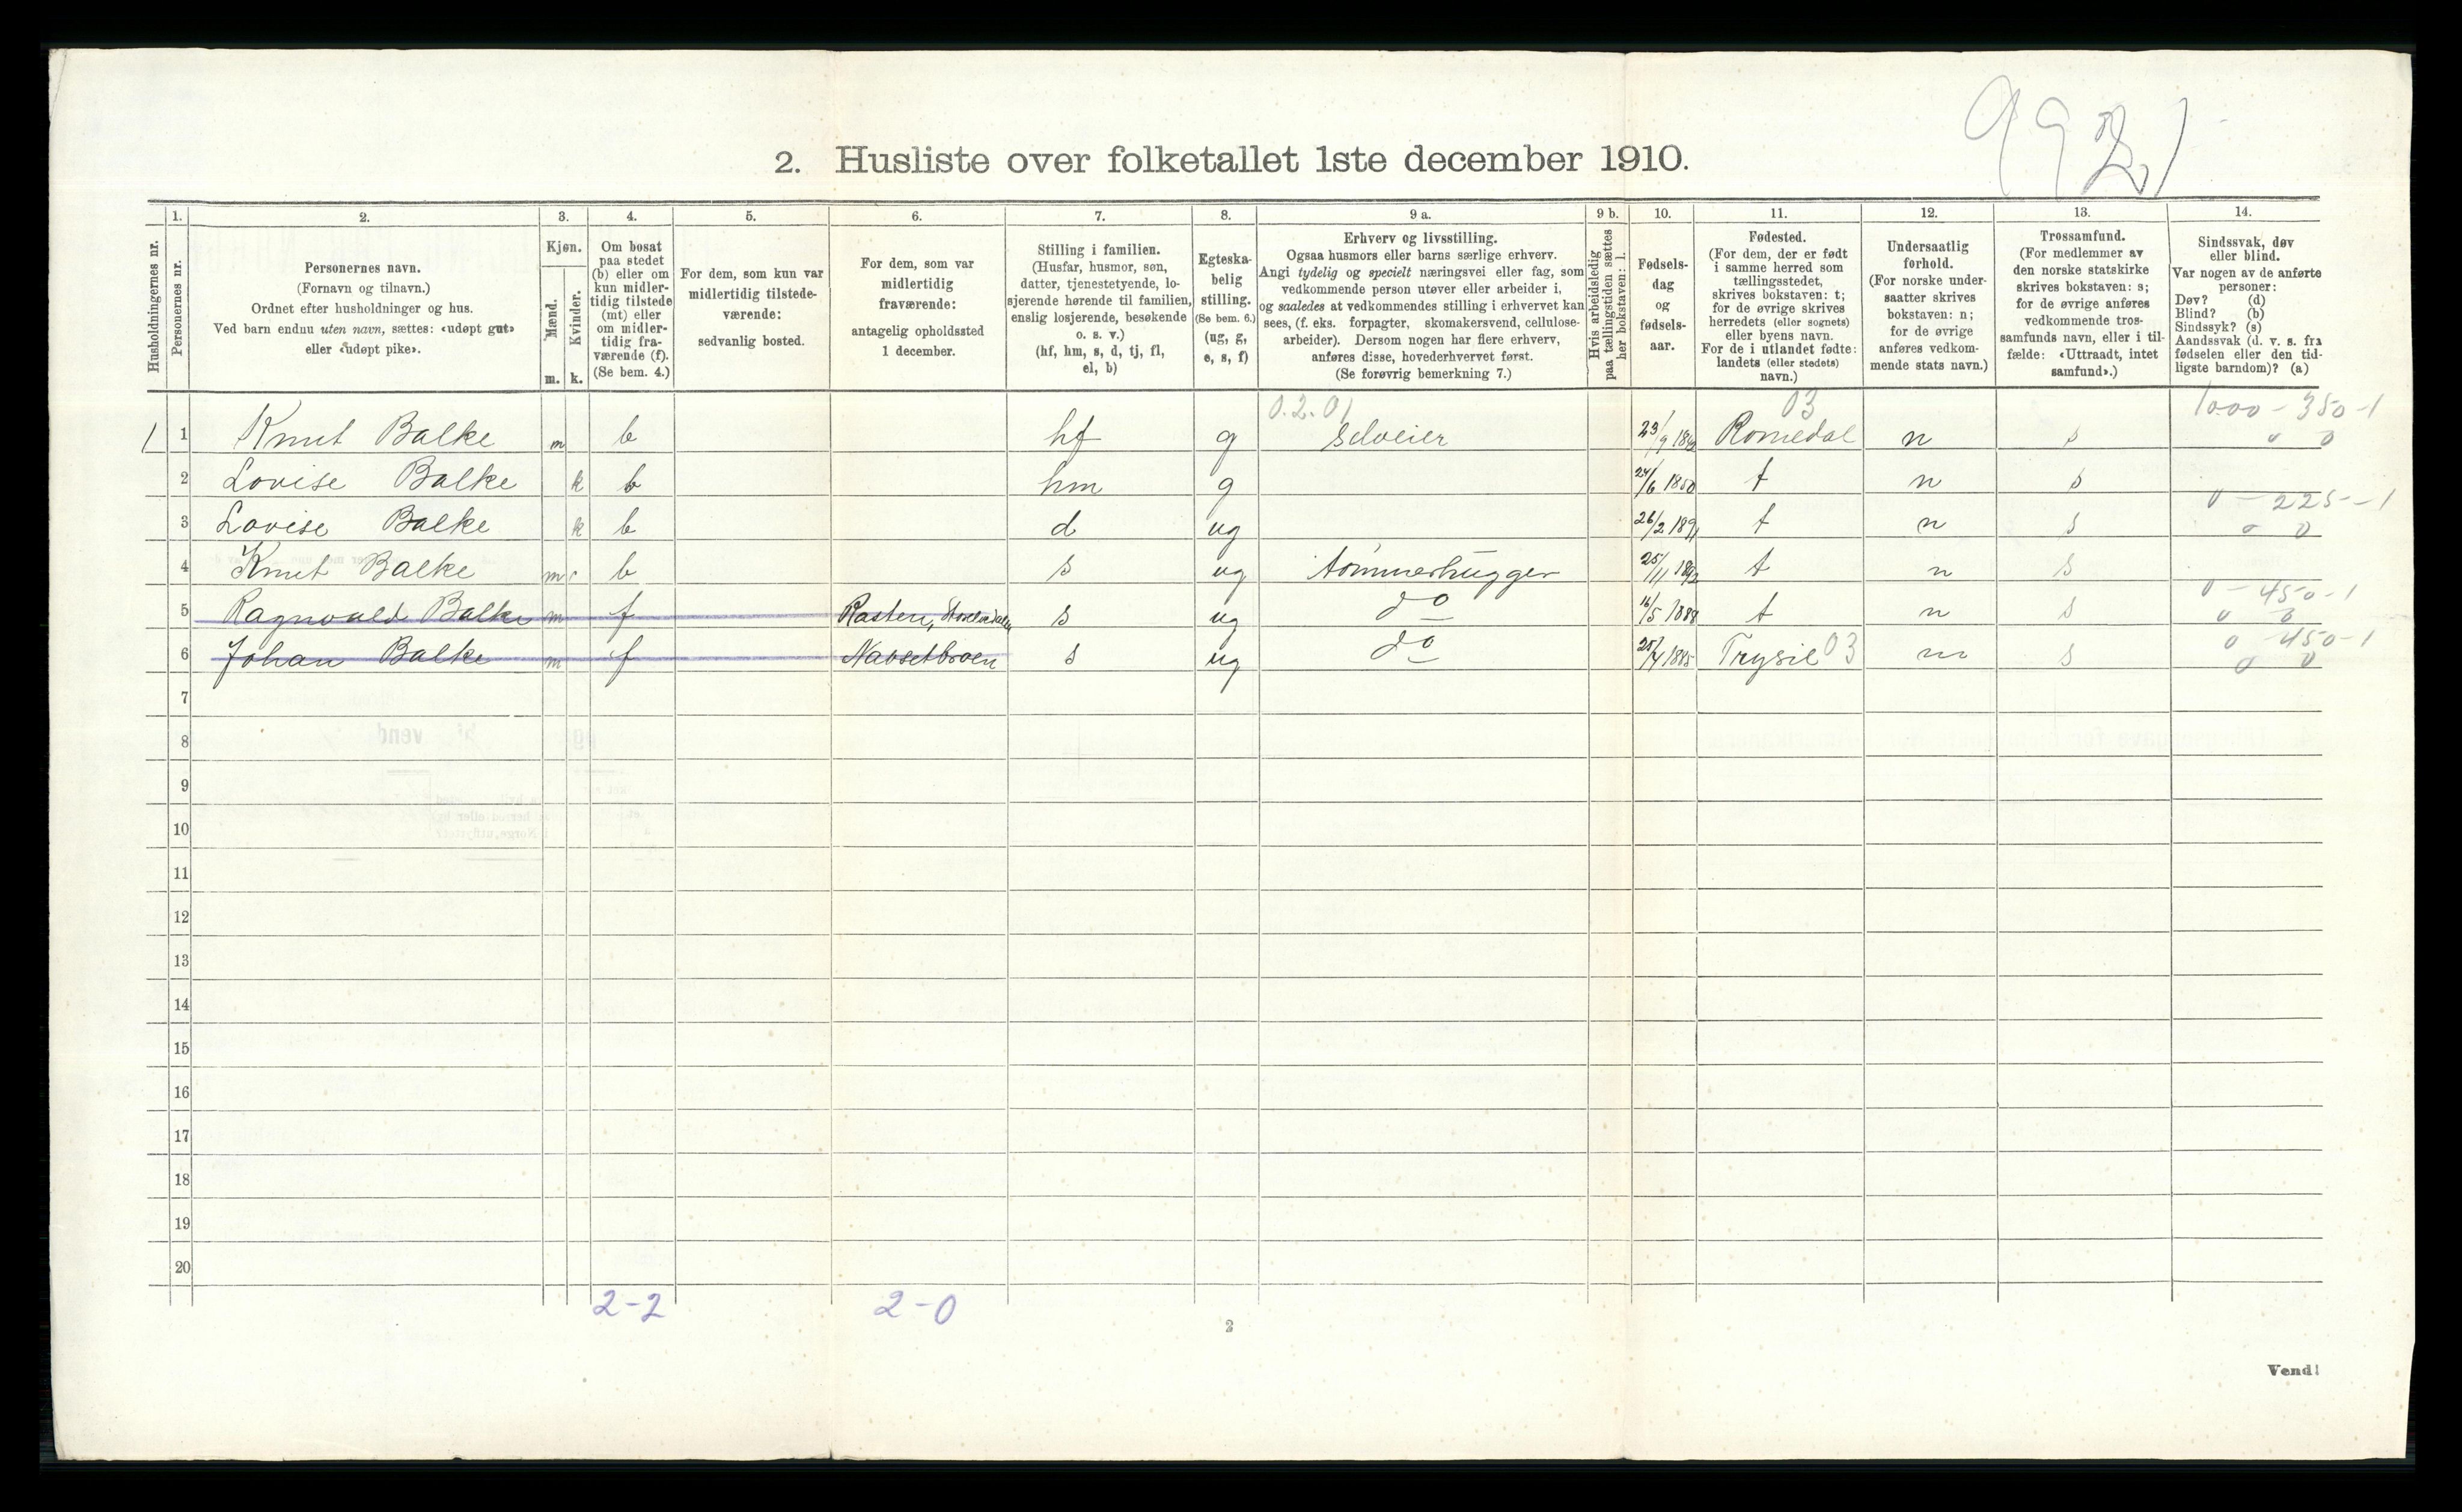 2. Husliste over folketallet 1ste december 1910.
Husholdningernes nr.
1.
Personernes nr.
2.
Personernes navn.
(Fornavn og tilnavn.)
Ordnet efter husholdninger og hus.
Ved barn endnu uten navn, sættes: «udøpt gut»
eller «udøpt pike».
3.
Kjøn.
Mænd.
Kvinder.
m. k.
4.
Om bosat
paa stedet
(b) eller om
kun midler-
tidig tilstede
(mt) eller
om midler-
tidig fra-
værende (f).
(Se bem. 4.)
5.
For dem, som kun var
midlertidig tilstede-
værende:
sedvanlig bosted.
6.
For dem, som var
midlertidig
fraværende:
antagelig opholdssted
1 december.
7.
Stilling i familien.
(Husfar, husmor, søn,
datter, tjenestetyende, lo-
sjerende hørende til familien,
enslig losjerende, besøkende
o. s. v.)
(hf, hm, s, d, tj, fl,
el, b)
8.
Egteska-
belig
stilling.
(Se bem. 6.)
(ug, g,
e, s, f)
9 a.
Erhverv og livsstilling.
Ogsaa husmors eller barns særlige erhverv.
Angi tydelig og specielt næringsvei eller fag, som
vedkommende person utøver eller arbeider i,
og saaledes at vedkommendes stilling i erhvervet kan
sees, (f. eks. forpagter, skomakersvend, cellulose-
arbeider). Dersom nogen har flere erhverv,
anføres disse, hovederhvervet først.
(Se forøvrig bemerkning 7.)
9 b.
Hvis arbeidsledig
paa tællingstiden sættes
her bokstaven: l.
10.
Fødsels-
dag
og
fødsels-
aar.
11.
Fødested.
(For dem, der er født
i samme herred som
tællingsstedet,
skrives bokstaven: t;
for de øvrige skrives
herredets (eller sognets)
eller byens navn.
For de i utlandet fødte:
landets (eller stedets)
navn.)
12.
Undersaatlig
forhold.
(For norske under-
saatter skrives
bokstaven: n;
for de øvrige
anføres vedkom-
mende stats navn.)
13.
Trossamfund.
(For medlemmer av
den norske statskirke
skrives bokstaven: s;
for de øvrige anføres
vedkommende tros-
samfunds navn, eller i til-
fælde: «Uttraadt, intet
samfund».)
14.
Sindssvak, døv
eller blind.
Var nogen av de anførte
personer:
Døv? (d)
Blind? (b)
Sindssyk? (s)
Aandssvak (d. v. s. fra
fødselen eller den tid-
ligste barndom)? (a)
0.2.01 03 1000 - 350 - 1
1 1 Knut Balke m b hf g selveier Romedal n s 0 0
2 Lovise Balke k b hm g 24/6 1850 t n s
0 - 225 - 1
3 Lovise Balke k b d ug 26/2 1891 t n s 0 0
4 Knut Balke m b s ug tømmerhugger 25/11 1892 t n s
0 - 450 - 1
5 Ragnvald Balke m f Rasten, s ug do 16/5 1888 t n s 0 0
0 450 - 1
6 Johan Balke m f s ug do 1885 Trysil 03 n s 0 0
7
8
9
10
11
12
13
14
15
16
17
18
19
20
2-2 2-0
2
Vend!